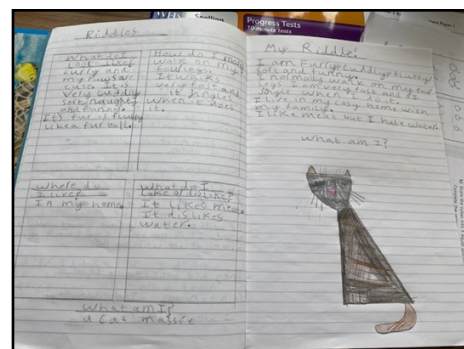 WHS
Spelling
Progress Tests
10 minute tests
Riddles
What do I
look like?
curly and
cute. It is
very cuddly
soft, naughty
and funny.
It's fur is fluffy
like a fur ball.
How do I move?
walk on my
four legs.
It walks
very fast and
it jingles
when it does
it.
Where do
I live?
In my home.
What do I
Like or dislike?
It likes meat.
It dislikes
water.
What am I?
a cat
My Riddle!
I am Furry, cuddly, fluffy
soft and funny.
I normally walk on my four
legs. I am very fast and I
jingle when I do it.
I live in my cosy home with
my family.
I like meat but I hate water.
What am I?